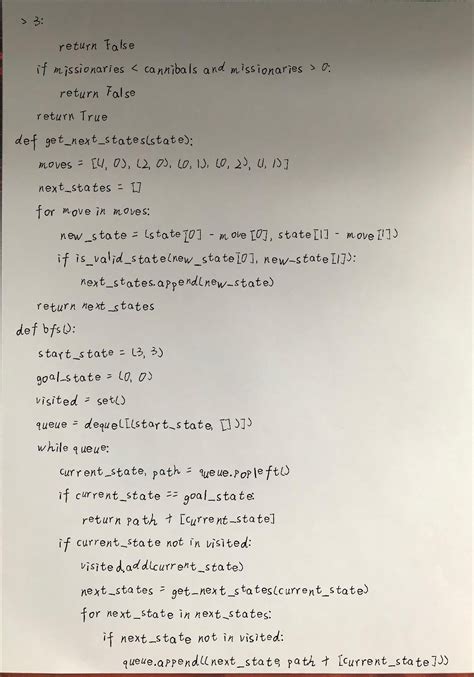 > 3:
return False
if missionaries < cannibals and missionaries > 0:
return False
return True
def get_next_states(state):
moves = [(1, 0), (2, 0), (0, 1), (0, 2), (1, 1)]
next_states = []
for move in moves:
new_state = (state[0] - move[0], state[1] - move[1])
if is_valid_state(new_state[0], new_state[1]):
next_states.append(new_state)
return next_states
def bfs():
start_state = (3, 3)
goal_state = (0, 0)
visited = set()
queue = deque([(start_state, [])])
while queue:
current_state, path = queue.popleft()
if current_state == goal_state:
return path + [current_state]
if current_state not in visited:
visited.add(current_state)
next_states = get_next_states(current_state)
for next_state in next_states:
if next_state not in visited:
queue.append((next_state, path + [current_state]))